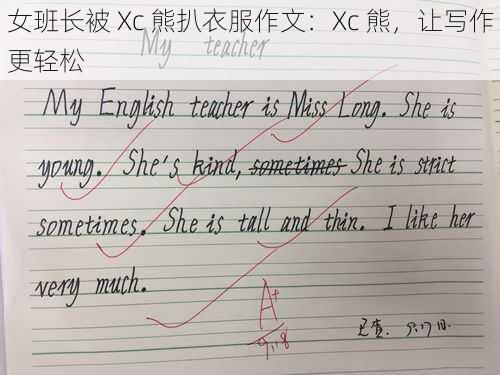 女班长被 Xc 熊扒衣服作文：Xc 熊，让写作
更轻松
My teacher
My English teacher is Miss Long. She is
young. She's kind, sometimes She is strict
sometimes. She is tall and thin. I like her
very much.
A+
9.18
已查. 9.17日.